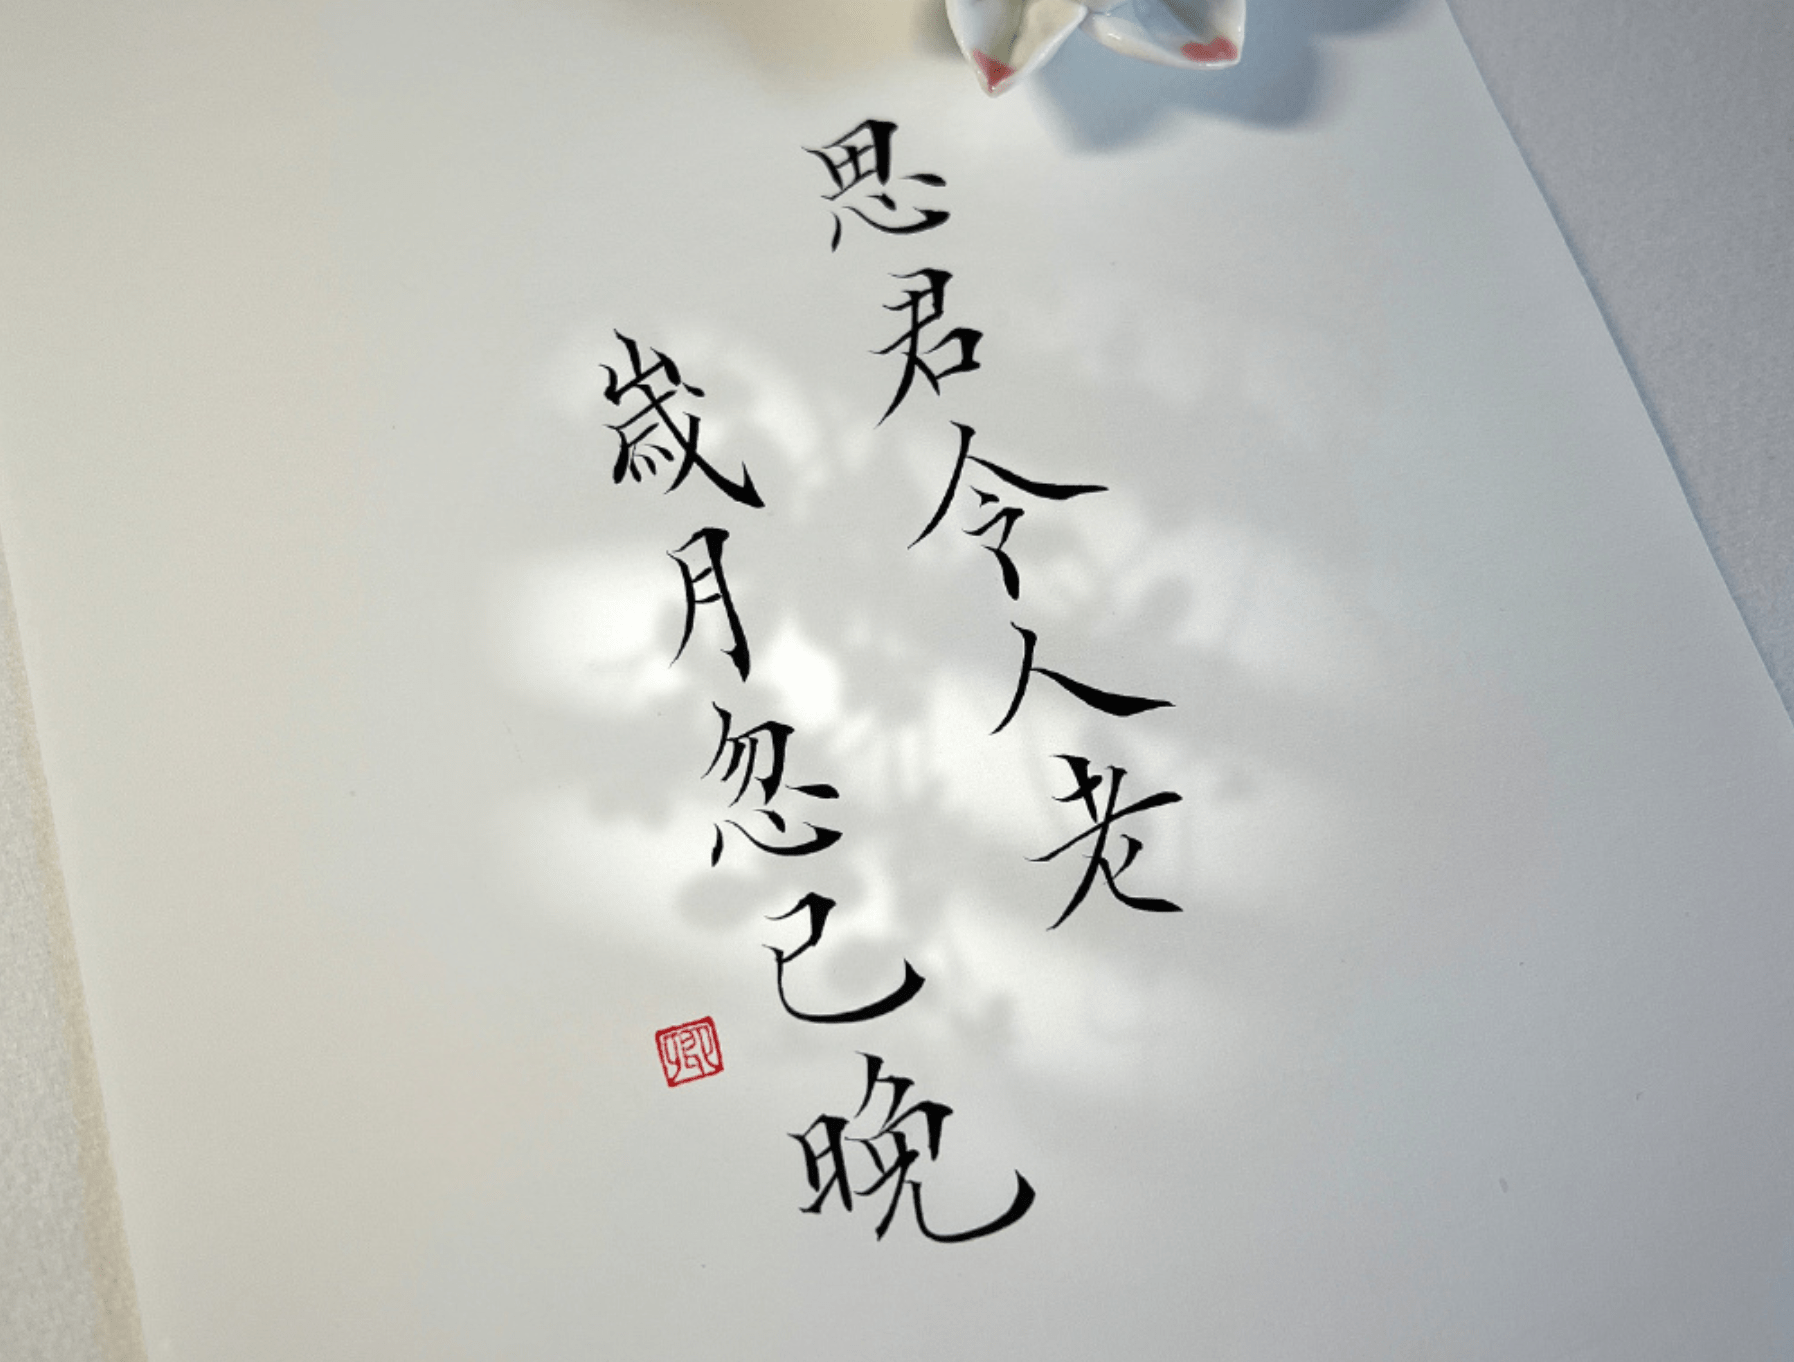 思君令人老
歳月忽已晚
卿